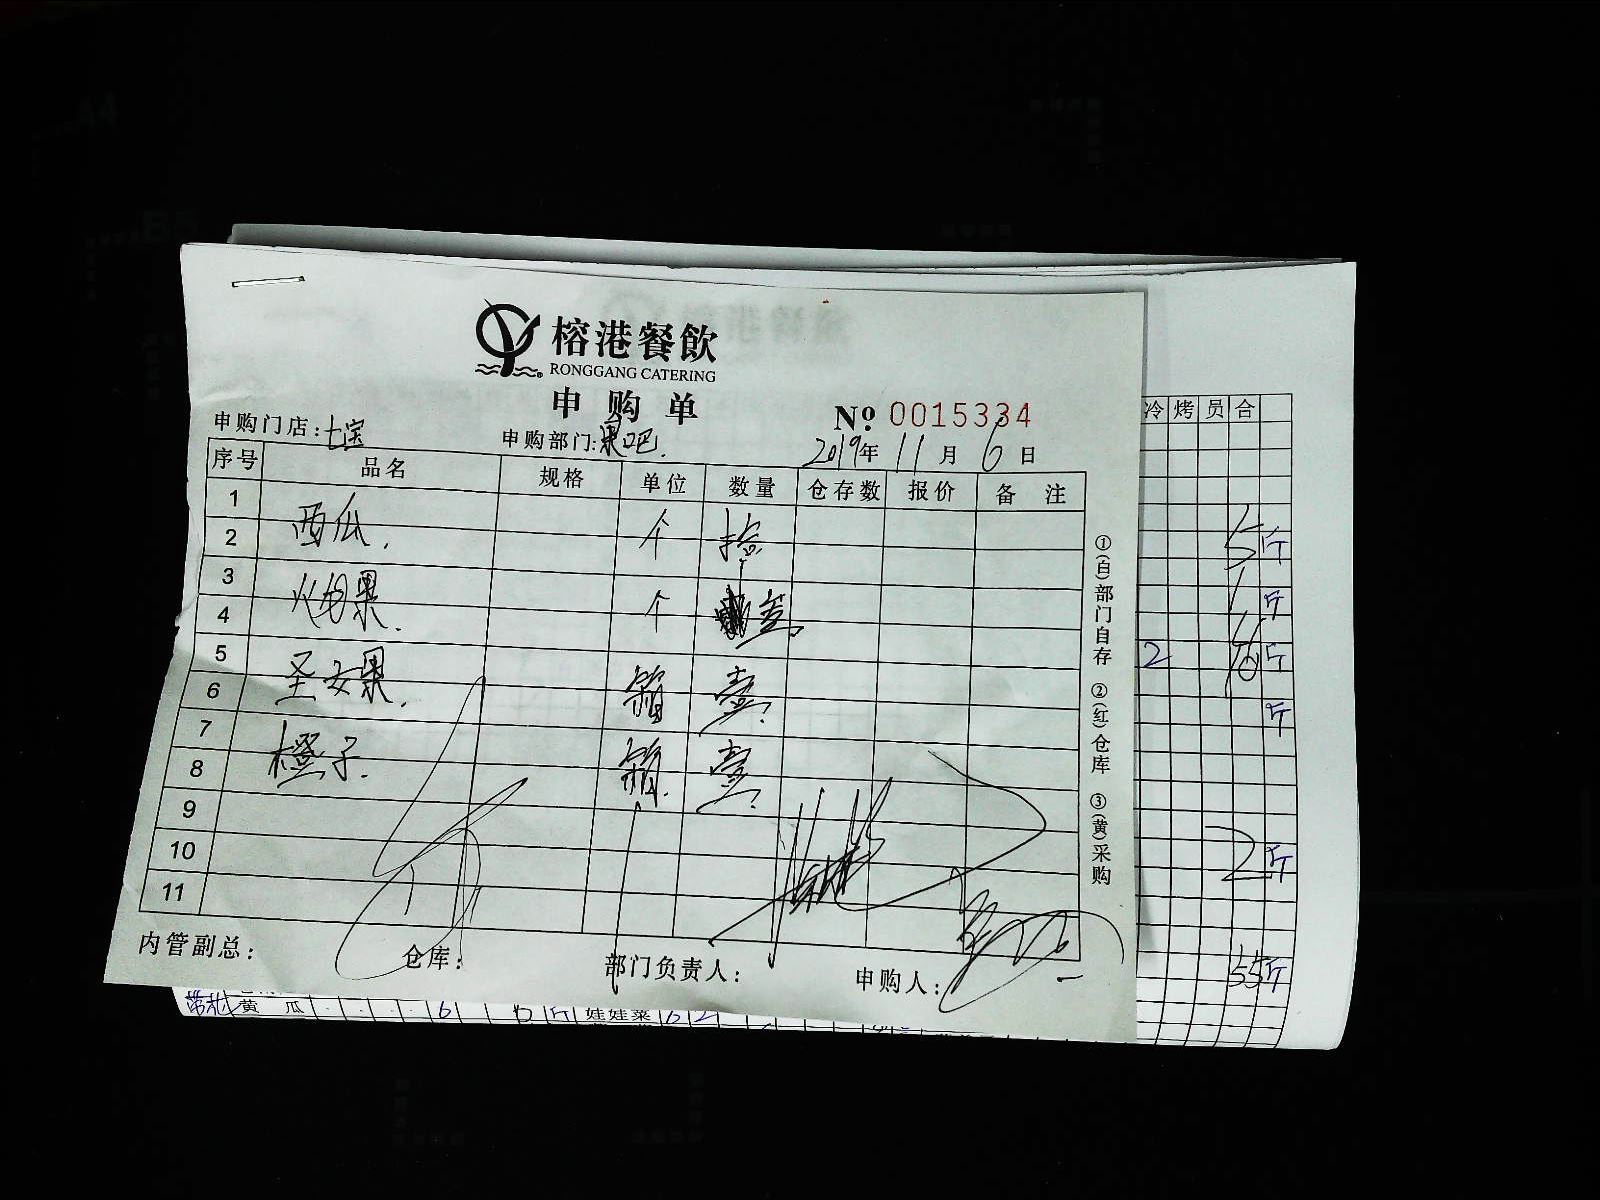 榕港餐飲
RONGGANG CATERING
申购单
№ 0015334
申购门店:七宝 申购部门:果吧. 2019年11月6日
序号 品名 规格 单位 数量 仓存数 报价 备注
1
2 西瓜. 个 拾
3
4 火龙果. 个 叁
5
6 圣女果. 箱 壹
7
8 橙子. 箱 壹
9
10
11
内管副总: 仓库: 部门负责人: 申购人:
①(白)部门自存 ②(红)仓库 ③(黄)采购
冷 烤 员 合
5 斤
1 斤
2 斤
斤
2 斤
55 斤
黄瓜 6 斤 娃娃菜 6 2